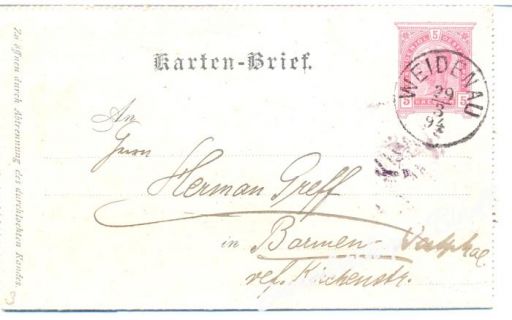 Karten-Brief.
5
WEIDENAU
29
3
94
5 5
Zu öffnen durch Abtrennung des durchlochten Randes.
An
Herrn
Herman Greff
in Barmen-
ref. Kirchenstr.